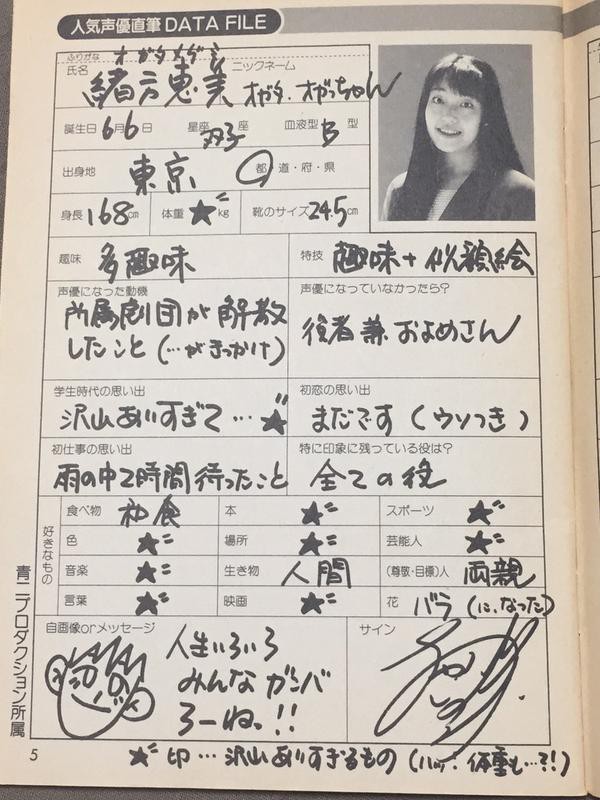 人気声優直筆 DATA FILE
ふりがな オガタ メグミ
氏名 緒方恵美 ニックネーム オガタ、オガっちゃん
誕生日 6月6日 星座 双子座 血液型 B型
出身地 東京 都・道・府・県
身長 168cm 体重 ★kg 靴のサイズ 24.5cm
趣味 多趣味 特技 趣味+似顔絵
声優になった動機 声優になっていなかったら?
所属劇団が解散 役者兼およめさん
したこと(…がきっかけ)
学生時代の思い出 初恋の思い出
沢山ありすぎて…★ まだです(ウソつき)
初仕事の思い出 特に印象に残っている役は?
雨の中2時間待ったこと 全ての役
好きなもの
食べ物 和食 本 ★ スポーツ ★
色 ★ 場所 ★ 芸能人 ★
音楽 ★ 生き物 人間 (尊敬・目標)人 両親
言葉 ★ 映画 ★ 花 バラ(に、なった)
自画像orメッセージ サイン
人生いろいろ
みんなガンバ
ろーねっ!!
青二プロダクション所属
5
★印…沢山ありすぎるもの(ハッ!体重も…?!)